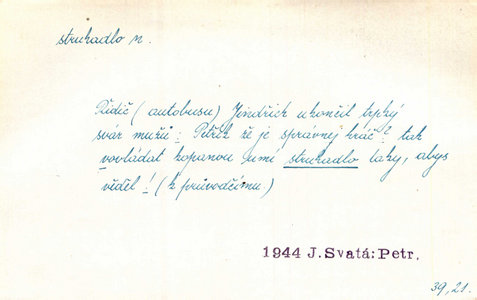 struhadlo n.
Řidič (autobusu) Jindřich ukončil trpký
svár mužů: Petřík že je správnej hráč? tak
vovládat kopanou umí struhadlo taky, abys
věděl! (k průvodčímu)
1944 J. Svatá: Petr.
39,21.